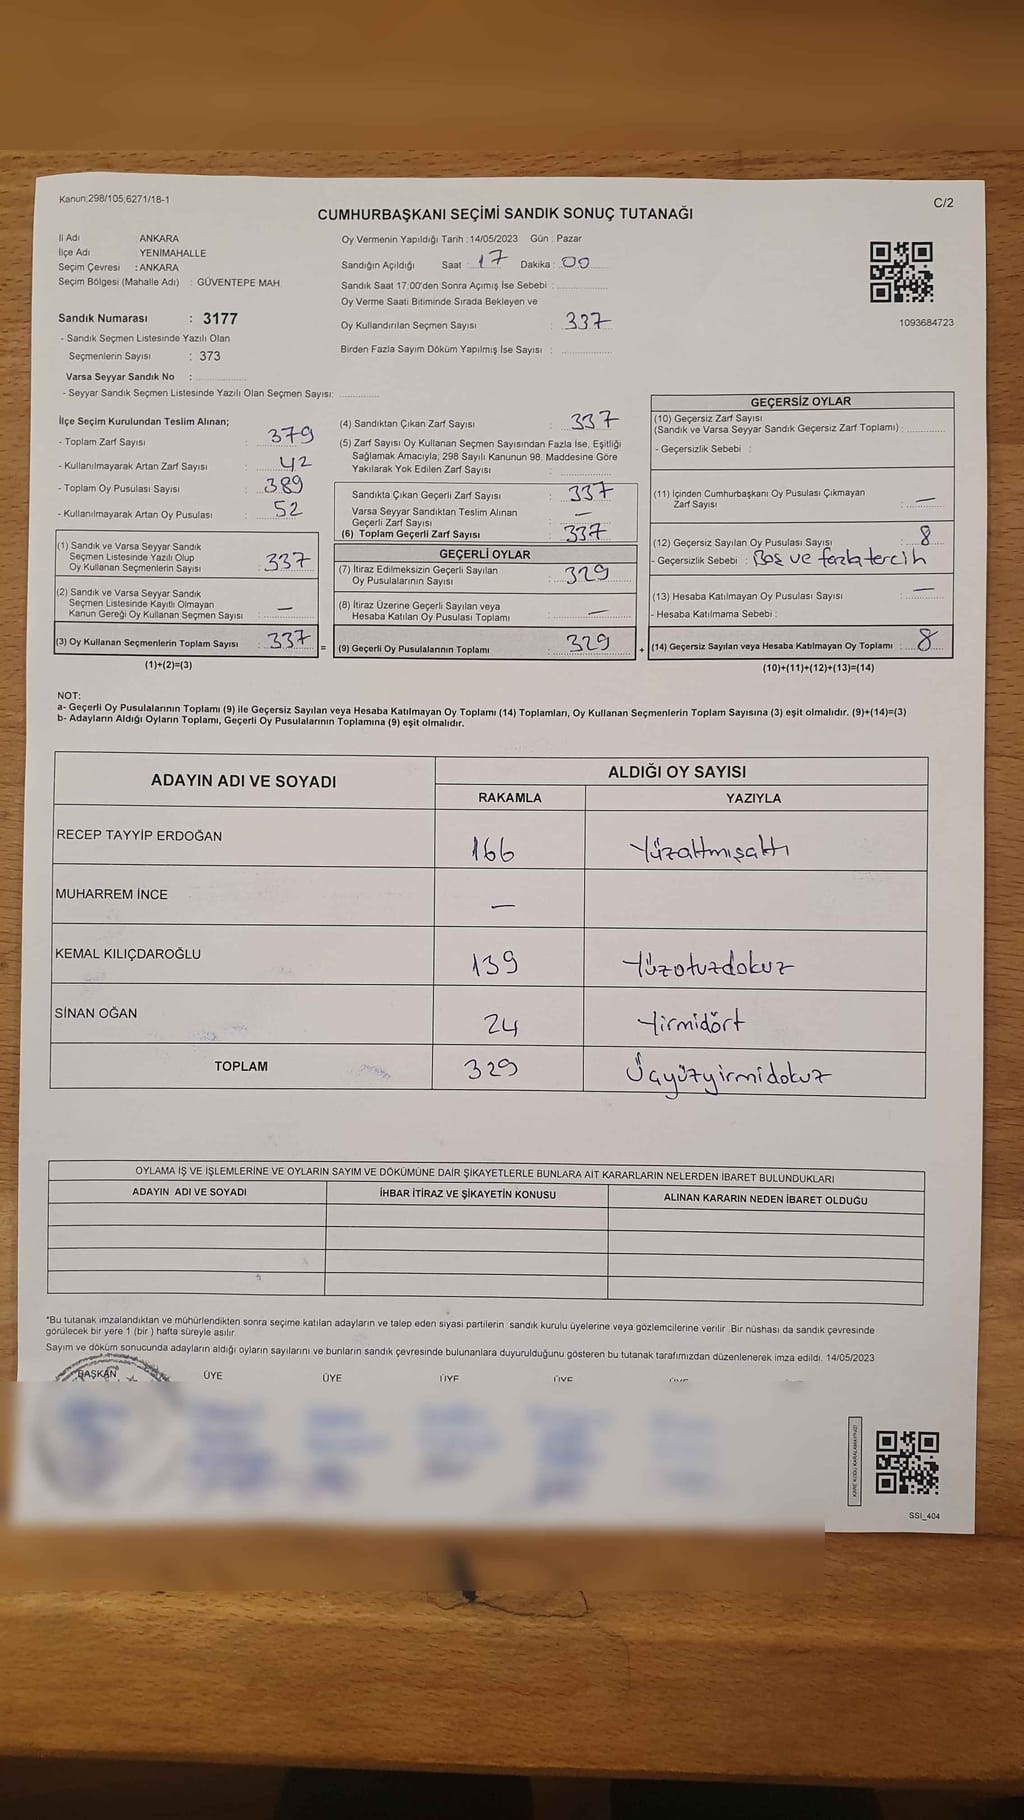 Kanun:298/105,6271/18-1
C/2
CUMHURBAŞKANI SEÇİMİ SANDIK SONUÇ TUTANAĞI
İl Adı ANKARA
İlçe Adı YENİMAHALLE
Seçim Çevresi : ANKARA
Seçim Bölgesi (Mahalle Adı) : GÜVENTEPE MAH.
Sandık Numarası : 3177
- Sandık Seçmen Listesinde Yazılı Olan
Seçmenlerin Sayısı : 373
Varsa Seyyar Sandık No :
- Seyyar Sandık Seçmen Listesinde Yazılı Olan Seçmen Sayısı:
Oy Vermenin Yapıldığı Tarih : 14/05/2023 Gün : Pazar
Sandığın Açıldığı Saat : 17 Dakika : 00
Sandık Saat 17:00'den Sonra Açımış İse Sebebi :
Oy Verme Saati Bitiminde Sırada Bekleyen ve
Oy Kullandırılan Seçmen Sayısı : 337
Birden Fazla Sayım Döküm Yapılmış İse Sayısı :
1093684723
İlçe Seçim Kurulundan Teslim Alınan;
- Toplam Zarf Sayısı : 379
- Kullanılmayarak Artan Zarf Sayısı : 42
- Toplam Oy Pusulası Sayısı : 389
- Kullanılmayarak Artan Oy Pusulası : 52
(1) Sandık ve Varsa Seyyar Sandık
Seçmen Listesinde Yazılı Olup
Oy Kullanan Seçmenlerin Sayısı : 337
(2) Sandık ve Varsa Seyyar Sandık
Seçmen Listesinde Kayıtlı Olmayan
Kanun Gereği Oy Kullanan Seçmen Sayısı : —
(3) Oy Kullanan Seçmenlerin Toplam Sayısı : 337 =
(1)+(2)=(3)
(4) Sandıktan Çıkan Zarf Sayısı : 337
(5) Zarf Sayısı Oy Kullanan Seçmen Sayısından Fazla İse, Eşitliği
Sağlamak Amacıyla; 298 Sayılı Kanunun 98. Maddesine Göre
Yakılarak Yok Edilen Zarf Sayısı :
Sandıkta Çıkan Geçerli Zarf Sayısı : 337
Varsa Seyyar Sandıktan Teslim Alınan
Geçerli Zarf Sayısı : —
(6) Toplam Geçerli Zarf Sayısı : 337
GEÇERLİ OYLAR
(7) İtiraz Edilmeksizin Geçerli Sayılan
Oy Pusulalarının Sayısı : 329
(8) İtiraz Üzerine Geçerli Sayılan veya
Hesaba Katılan Oy Pusulası Toplamı : —
(9) Geçerli Oy Pusulalarının Toplamı : 329 +
GEÇERSİZ OYLAR
(10) Geçersiz Zarf Sayısı
(Sandık ve Varsa Seyyar Sandık Geçersiz Zarf Toplamı) :
- Geçersizlik Sebebi :
(11) İçinden Cumhurbaşkanı Oy Pusulası Çıkmayan
Zarf Sayısı : —
(12) Geçersiz Sayılan Oy Pusulası Sayısı : 8
- Geçersizlik Sebebi : Boş ve fazla tercih
(13) Hesaba Katılmayan Oy Pusulası Sayısı : —
- Hesaba Katılmama Sebebi :
(14) Geçersiz Sayılan veya Hesaba Katılmayan Oy Toplamı : 8
(10)+(11)+(12)+(13)=(14)
NOT:
a- Geçerli Oy Pusulalarının Toplamı (9) ile Geçersiz Sayılan veya Hesaba Katılmayan Oy Toplamı (14) Toplamları, Oy Kullanan Seçmenlerin Toplam Sayısına (3) eşit olmalıdır. (9)+(14)=(3)
b- Adayların Aldığı Oyların Toplamı, Geçerli Oy Pusulalarının Toplamına (9) eşit olmalıdır.
ADAYIN ADI VE SOYADI ALDIĞI OY SAYISI
RAKAMLA YAZIYLA
RECEP TAYYİP ERDOĞAN 166 Yüzaltmışaltı
MUHARREM İNCE —
KEMAL KILIÇDAROĞLU 139 Yüzotuzdokuz
SİNAN OĞAN 24 Yirmidört
TOPLAM 329 Üçyüzyirmidokuz
OYLAMA İŞ VE İŞLEMLERİNE VE OYLARIN SAYIM VE DÖKÜMÜNE DAİR ŞİKAYETLERLE BUNLARA AİT KARARLARIN NELERDEN İBARET BULUNDUKLARI
ADAYIN ADI VE SOYADI İHBAR İTİRAZ VE ŞİKAYETİN KONUSU ALINAN KARARIN NEDEN İBARET OLDUĞU
*Bu tutanak imzalandıktan ve mühürlendikten sonra seçime katılan adayların ve talep eden siyasi partilerin sandık kurulu üyelerine veya gözlemcilerine verilir. Bir nüshası da sandık çevresinde
görülecek bir yere 1 (bir) hafta süreyle asılır.
Sayım ve döküm sonucunda adayların aldığı oyların sayılarını ve bunların sandık çevresinde bulunanlara duyurulduğunu gösteren bu tutanak tarafımızdan düzenlenerek imza edildi. 14/05/2023
BAŞKAN ÜYE ÜYE ÜYE ÜYE ÜYE
SSI_404